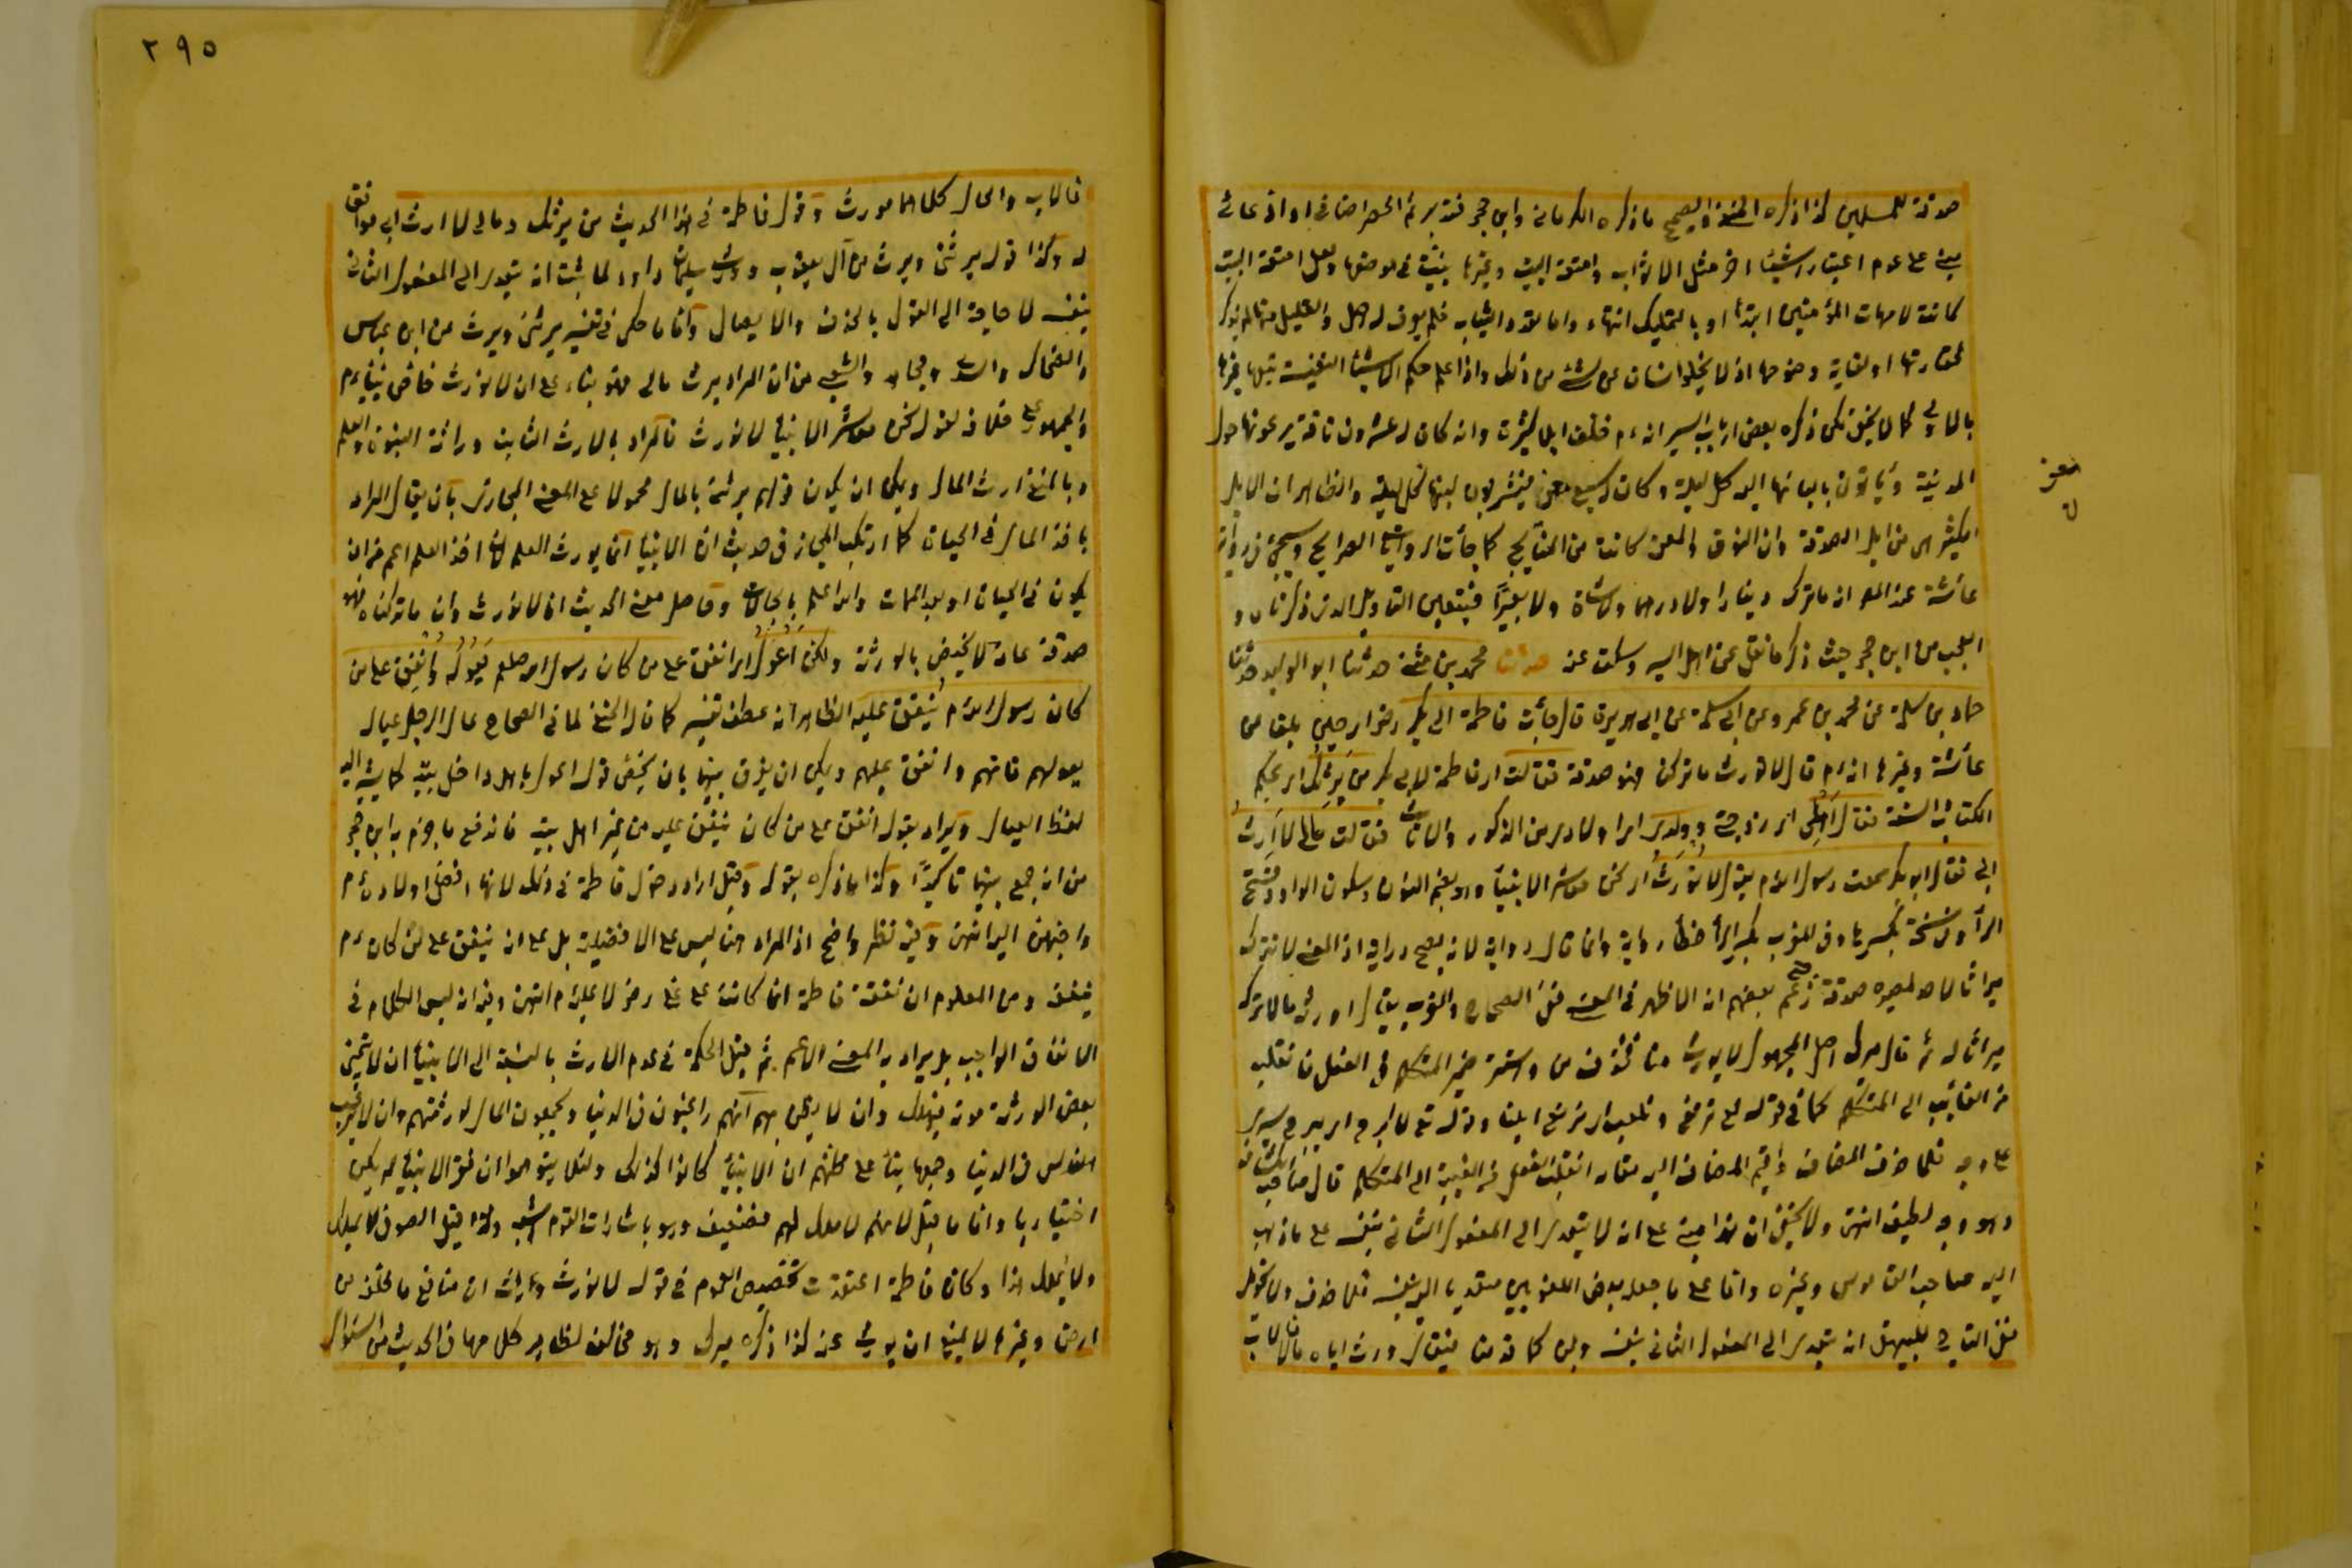 صدقة للمسلمين كذا ذكره الحنفي والصحيح ما ذكره الكرماني وابن حجر فتدبر ثم الحصر اضافي او ادعائي
مبني على عدم اعتبار اشيئا اخر مثل الاثواب وامتعة البيت وغيرها بينت في موضعها ولعل امتعة البيت
كانت لامهات المؤمنين ابتداً او بالتمليك انتهاء واما نقد والثياب فلم يعرف له اصل والقليل منها لم يذكر
لحقارتها او لغاية وضوحها اذ لا يخلو انسان عن شئ من ذلك واذا علم حكم الاشياء النفيسة
بالاولى كما لا يخفى لكن ذكره بعض ارباب السير انه م خلف ابلا كثيرة وانه كان له عشرون ناقة يرعونها حول
المدينة ويأتون بالبانها اليه كل ليلة وكان له سبع معز فيشربون لبنها كل ليلة والظاهر ان الابل
الكثير هي من ابل الصدقة وان النوق والمعز كانت من المنايح كما جأت الروايات الصرايح وسيجئ في رواية
عائشة عند المص انه ما ترك دينارا ولا درهما ولا شاة ولا بعيراً فيتعين التأويل الذي ذكرناه و
العجب من ابن حجر حيث ذكر ما نقل عن اهل السير وسكت عنه حدثنا محمد بن مثنى حدثنا ابو الوليد حدثنا
حماد بن سلمة عن محمد بن عمرو عن ابي سلمة عن ابي هريرة قال جأت فاطمة الى ابي بكر رضي الله حين بلغها من
عائشة وغيرها انه م قال لا نورث ما تركنا فهو صدقة فقالت اي فاطمة لابي بكر من يَرِثك اي بحكم
الكتاب والسنة فقال اهلي اي زوجتي وولدي اي اولادي من الذكور والاناث فقالت مالي لا اَرِثُ
ابي فقال ابو بكر سمعت رسول الله م يقول لا نُوْرَثُ اي نحن معاشر الانبيأ وهو بضم النون وسكون الواو وفتح
الرأ وفي نسخة بكسرها وفي المغرب بكسر الرأ خطأ رواية وانما قال رواية لانه يصح دراية اذ المعنى لا نترك
ميراثا لاحد لمصيره صدقة زعم بعضهم انه الاظهر في المعنى ففي الصحاح والمغرب يقال اورثه مالا تركه
ميراثا له ثم قال ميرك اصل المجهول لا يورث منا فحذف من واستتر ضمير المتكلم في الفعل فانقلب
من الغايب الى المتكلم كما في قوله تع نرتع ونلعب اي نرتع ابلنا وقوله تع لا ابرح اي يبرح سيري
على وجه فلما حذف المضاف واقيم المضاف اليه مقامه انقلبت الفعل من الغيبة الى المتكلم قال صاحب الكشاف
وهو وجه لطيف انتهى ولا يخفى ان هذا مبني على انه لا يتعدى الى المفعول الثاني بنفسه على ما ذهب
اليه صاحب القاموس وغيره واما على ما جعله بعض اللغويين متعديا اليه بنفسه فلا حذف ولا تحويل
ففي التاج للبيهقي انه يتعدى الى المفعول الثاني بنفسه وبمن كما قدمنا فيقال ورث اباه مالا فالاب
معز
٢٩٥
فالاب والمال كلاهما مورث وقول فاطمة في هذا الحديث من يرثك ومالي لا ارث ابي موافق
له وكذا قوله يرثني ويرث من آل يعقوب وورث سليمان داود لما ثبت انه يتعدى الى المفعول الثاني
بنفسه لا حاجة الى القول بالحذف والايصال وأما ما حكي في تفسير يرثني ويرث عن ابن عباس
والضحاك والسدي ومجاهد والشعبي من ان المراد يرث مالي فهو بناء على ان لا نورث خاص بنبينا م
والجمهور على خلافه لقوله نحن معاشر الانبيأ لا نورث فالمراد بالارث الثابت وراثة النبوة والعلم
وبالمنفي ارث المال ويمكن ان يكون قولهم يرثني بالمال محمولا على المعنى المجازي بأن يقال المراد
باخذ المال في الحيات كما ارتكب المجاز في حديث ان الانبيا انما يورث العلم لان اخذ العلم اعم من ان
يكون في الحيات او بعد الممات والله اعلم بالحالات وحاصل معنى الحديث انا لا نورث وان ما تركناه فهو
صدقة عامة لا يختص بالورثة ولكن اَعُوْلُ اي انفق على من كان رسول الله صلعم يَعُوْلُه وأُنْفِق على من
كان رسول الله م يُنفق عليه الظاهر انه عطف تفسير كما قال الحنفي لما في الصحاح عال الرجل عياله
يعولهم قاتهم وانفق عليهم ويمكن ان يفرق بينهما بان يخص قوله اعول باهل داخل بيته كما يشير اليه
لفظ العيال ويراد بقوله انفق على من كان ينفق عليه من غير اهل بيته فاندفع ما جزم به ابن حجر
من انه جمع بينهما تأكيدًا وكذا ما ذكره بقوله وقيل اراد دخول فاطمة في ذلك لانها افضل اولاده م
واحبهن اليه انتهى وفيه نظر واضح اذ المراد هنا ليس على الافضلية بل على انه ينفق على من كان م
ينفقه ومن المعلوم ان نفقة فاطمة انما كانت على علي رض لا عليه م انتهى وفيه انه ليس الكلام في
الانفاق الواجب بل يراد به المعنى الاعم ثم قيل الحكمة في عدم الارث بالنسبة الى الانبيأ ان لا يتمنى
بعض الورثة موته فيهلك وان لا يظن بهم انهم راغبون في الدنيا ويجمعون المال لورثتهم وان لا يرغب
الناس في الدنيا وجمعها بناءً على ظنهم ان الانبيأ كانوا كذلك ولئلا يتوهموا ان فقر الانبيأ لم يكن
اختياريا واما ما قيل لانهم لا ملك لهم فضعيف وهو باشارات القوم اشبه ولذا قيل الصوفي لا يملك
ولا يُملك هذا وكان فاطمة اعتقدت تخصيص العموم في قوله لا نورث ورأت ان منافع ما خلفه من
ارض وغيرها لا يمنع ان يورث عنه كذا ذكره ميرك وهو مخالف لظاهر كلامها في الحديث من السؤال